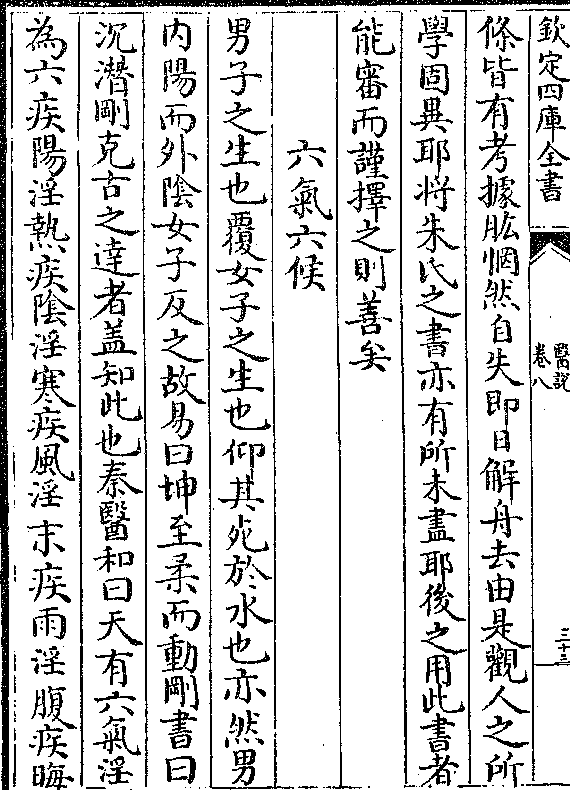 欽定四庫全書
醫說
卷八
三十三
條皆有考據肱惘然自失即日解舟去由是觀人之所
學固異耶将朱氏之書亦有所未盡耶後之用此書者
能審而謹擇之則善矣
六氣六候
男子之生也覆女子之生也仰其死於水也亦然男
内陽而外陰女子反之故易曰坤至柔而動剛書曰
沉潛剛克古之達者盖知此也秦醫和曰天有六氣淫
為六疾陽淫熱疾陰淫寒疾風淫末疾雨淫腹疾晦